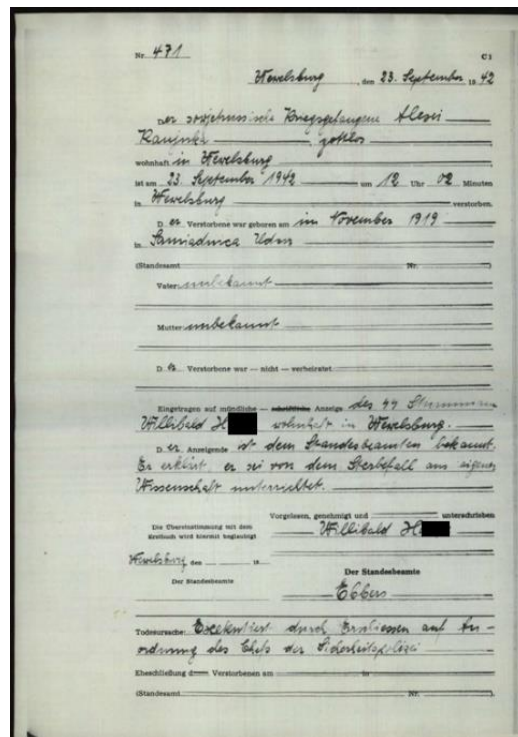 Nr. 471
C1
Wewelsburg, den 23. September 1942
Der sowjetrussische Kriegsgefangene Alesei
gottlos
wohnhaft in Wewelsburg
ist am 23. September 1942 um 12 Uhr 02 Minuten
in Wewelsburg verstorben.
Der Verstorbene war geboren am im November 1919
in
(Standesamt Nr. )
Vater: unbekannt
Mutter: unbekannt
Der Verstorbene war — nicht — verheiratet
Eingetragen auf mündliche — schriftliche Anzeige des SS
Willibald H wohnhaft in Wewelsburg.
Der Anzeigende ist dem Standesbeamten bekannt.
Er erklärt, er sei von dem Sterbefall aus eigener
Wissenschaft unterrichtet.
Vorgelesen, genehmigt und unterschrieben
Die Übereinstimmung mit dem
Erstbuch wird hiermit beglaubigt
Willibald H
Wewelsburg, den 19
Der Standesbeamte
Der Standesbeamte
Ebbers
Todesursache: Excekutiert durch Erschiessen auf An-
ordnung des Chefs der Sicherheitspolizei
Eheschließung d Verstorbenen am in
(Standesamt Nr. )